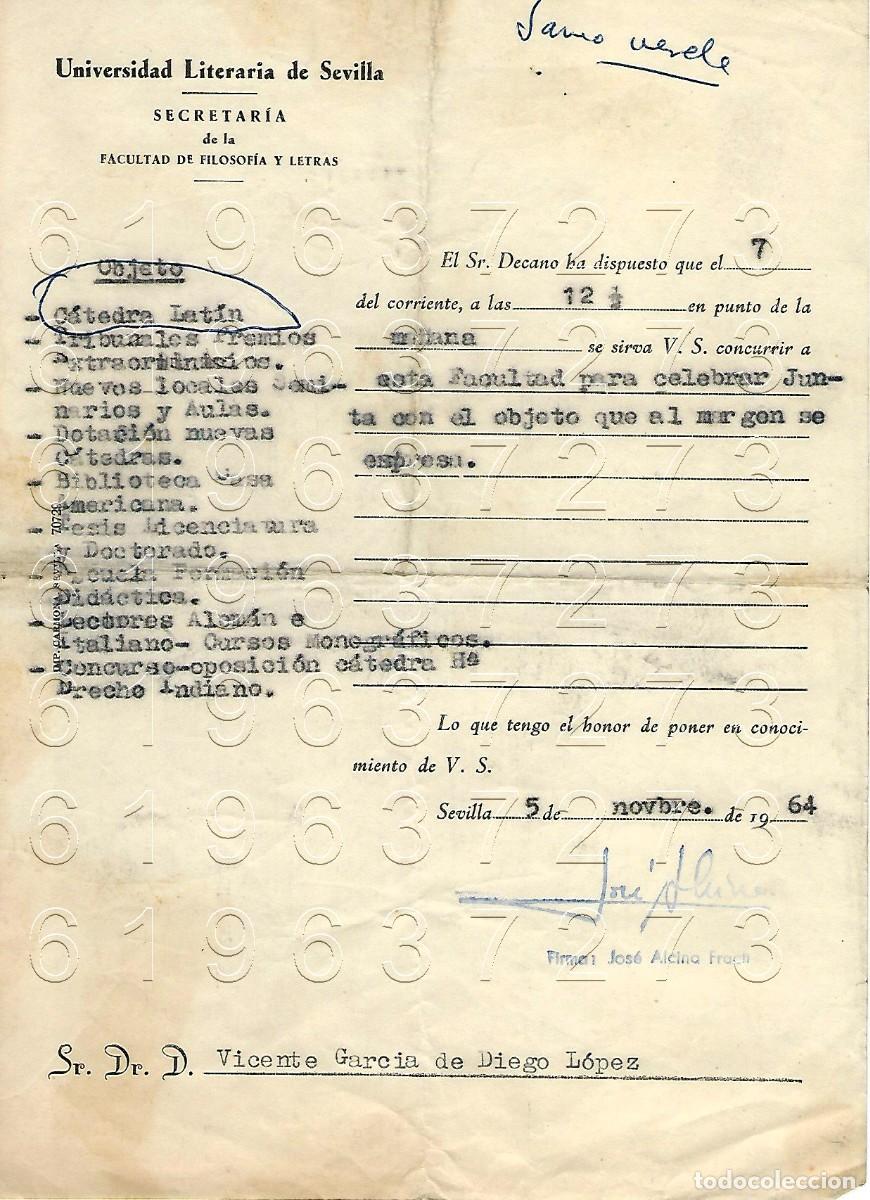 verde
Universidad Literaria de Sevilla
SECRETARÍA
de la
FACULTAD DE FILOSOFÍA Y LETRAS
Objeto
- Cátedra Latín
- Tribunales Premios
Extraordinarios.
- Nuevos locales Semi-
narios y Aulas.
- Dotación nuevas
Cátedras.
- Biblioteca Casa
Americana.
- Tesis Licenciatura
y Doctorado.
- Escuela Formación
Didáctica.
- Lectores Alemán e
Italiano- Cursos Monográficos.
- Concurso-oposición cátedra Hª
Drecho Indiano.
El Sr. Decano ha dispuesto que el 7
del corriente, a las 12 ½ en punto de la
mañana se sirva V. S. concurrir a
esta Facultad para celebrar Jun-
ta con el objeto que al margen se
expresa.
Lo que tengo el honor de poner en conoci-
miento de V. S.
Sevilla 5 de novbre. de 19 64
José Alcina
Firma: José Alcina Franch
Sr. Dr. D. Vicente Garcia de Diego López
IMP. CARMONA-SEVILLA
619637273
619637273
619637273
619637273
619637273
619637273
619637273
todocoleccion